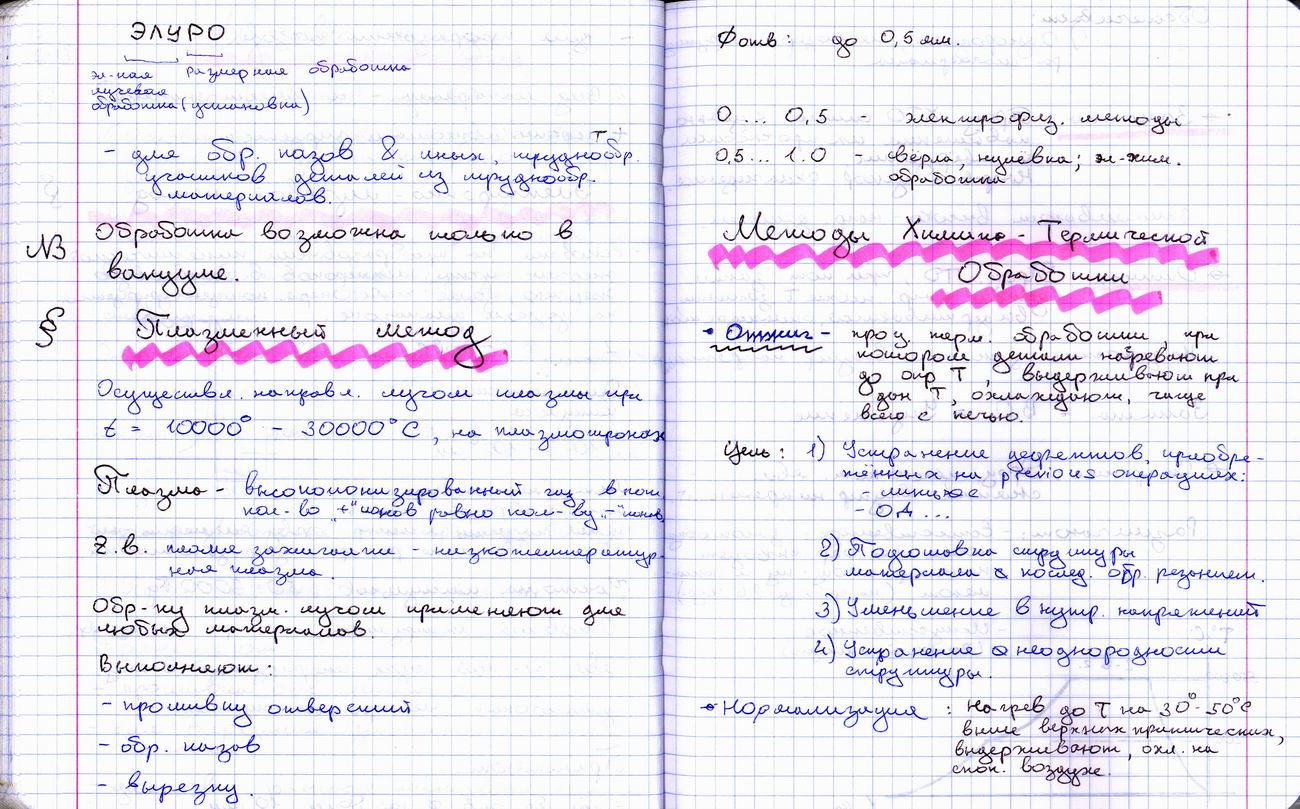 ЭЛУРО
эл-ная размерная обработка
лучевая
обработка (установка)
- для обр. пазов & иных, труднообр.
участков деталей из труднообр.
материалов.
NB Обработка возможна только в
вакууме.
§ Плазменный метод
Осуществл. направл. лучом плазмы при
t = 10000° - 30000°C, на плазмотронах
Плазма - высокоионизированный газ, в кот.
кол-во "+" ионов равно кол-ву "-" ионов
Z.B. пламя зажигалки - низкотемператур-
ная плазма.
Обр-ку плазм. лучом применяют для
любых материалов.
Выполняют:
- прошивку отверстий
- обр. пазов
- вырезку.
Фотв: до 0,5 мм.
0 ... 0,5 - электрофиз. методы
0,5 ... 1.0 - свёрла, нулёвка; эл-хим.
обработка
Методы Химико-Термической
Обработки
• Отжиг - проц. терм. обработки, при
котором детали нагревают
до опр T, выдерживают при
дан T, охлаждают, чаще
всего с печью.
Цель: 1) Устранение дефектов, приобре-
тённых на previous операциях:
- литьё
- ОД...
2) Подготовка структуры
материала к послед. обр. резанием.
3) Уменьшение внутр. напряжений
4) Устранение неоднородности
структуры.
• Нормализация: Нагрев до T на 30°-50°C
выше верхних критических,
выдерживают, охл. на
спок. воздухе.